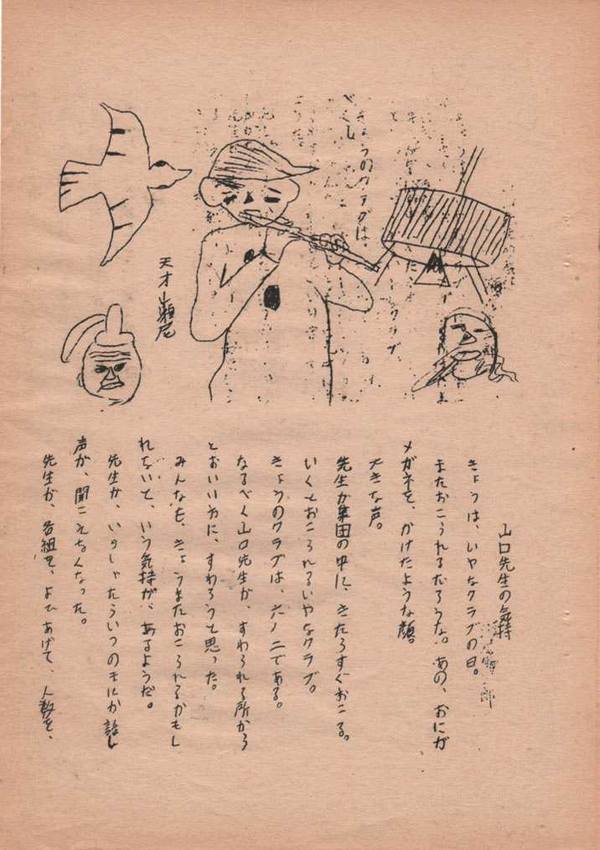 天才 瀬尾
山口先生の気持
郎
きょうは、いやなクラブの日。
またおこられるだろうな。あの、おにが
メガネを、かけたような顔。
大きな声。
先生が集団の中に、きたらすぐおこる。
いくとおこられるいやなクラブ。
きょうのクラブは、六ノ二である。
なるべく山口先生が、すわられる所から
とおいいすに、すわろうと思った。
みんなも、きょうまたおこられるかもし
れないと、いう気持が、あるようだ。
先生が、いらしゃたらいつのまにか話し
声が、聞こえなくなった。
先生が、各組を、よびあげて、人数を、